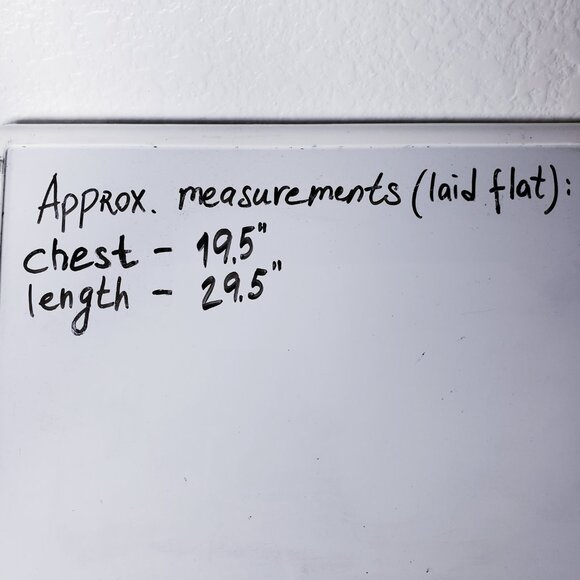 Approx. measurements (laid flat):
chest - 19.5"
length - 29.5"